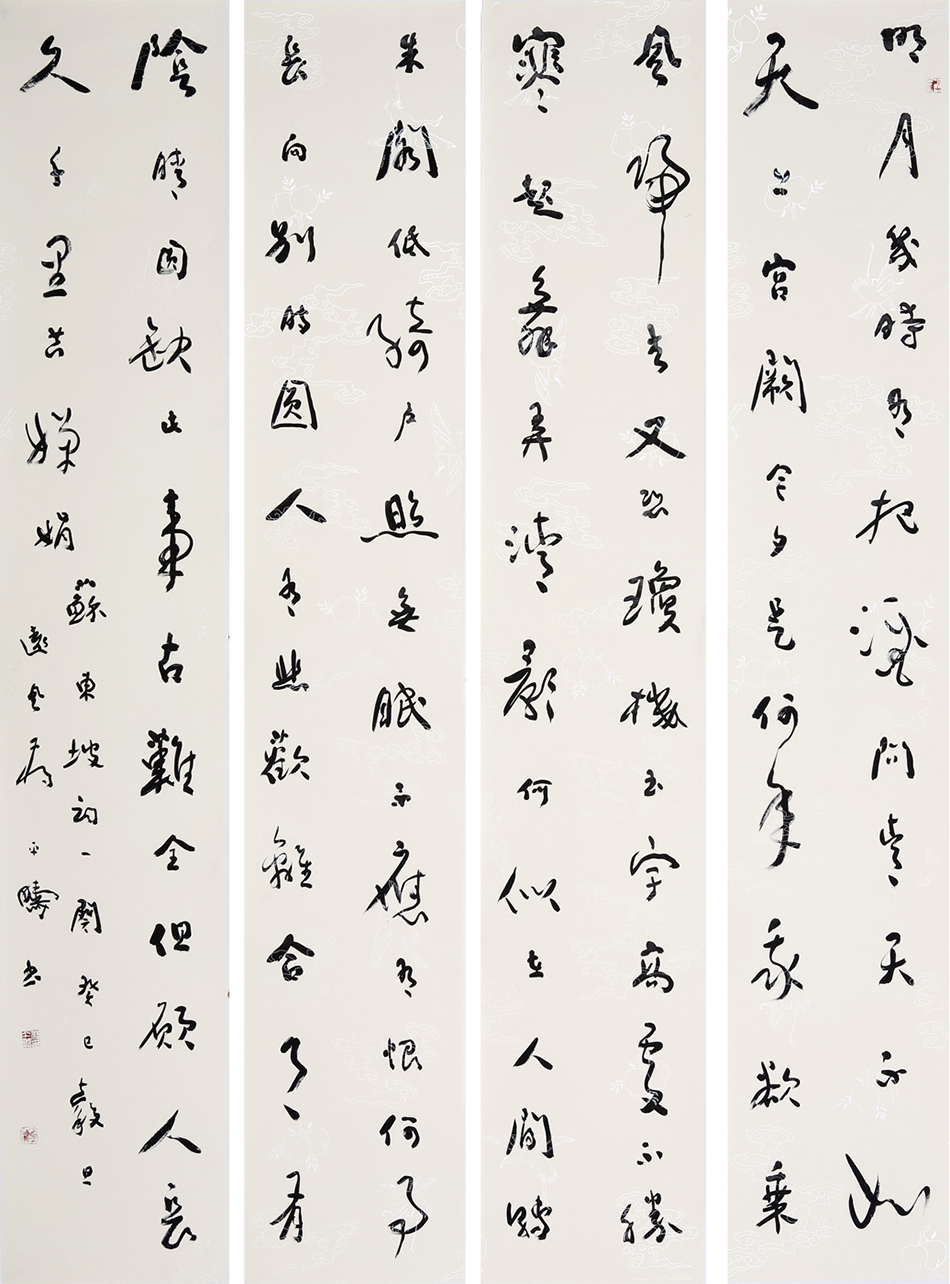 明月幾時有把酒問青天不知
天上宮闕今夕是何年我欲乘
風歸去又恐瓊樓玉宇高處不勝
寒起舞弄清影何似在人間轉
朱閣低綺戶照無眠不應有恨何事
長向別時圓人有悲歡離合月有
陰晴圓缺此事古難全但願人長
久千里共嬋娟
蘇東坡詞一闋癸巳穀旦
遠風疇書